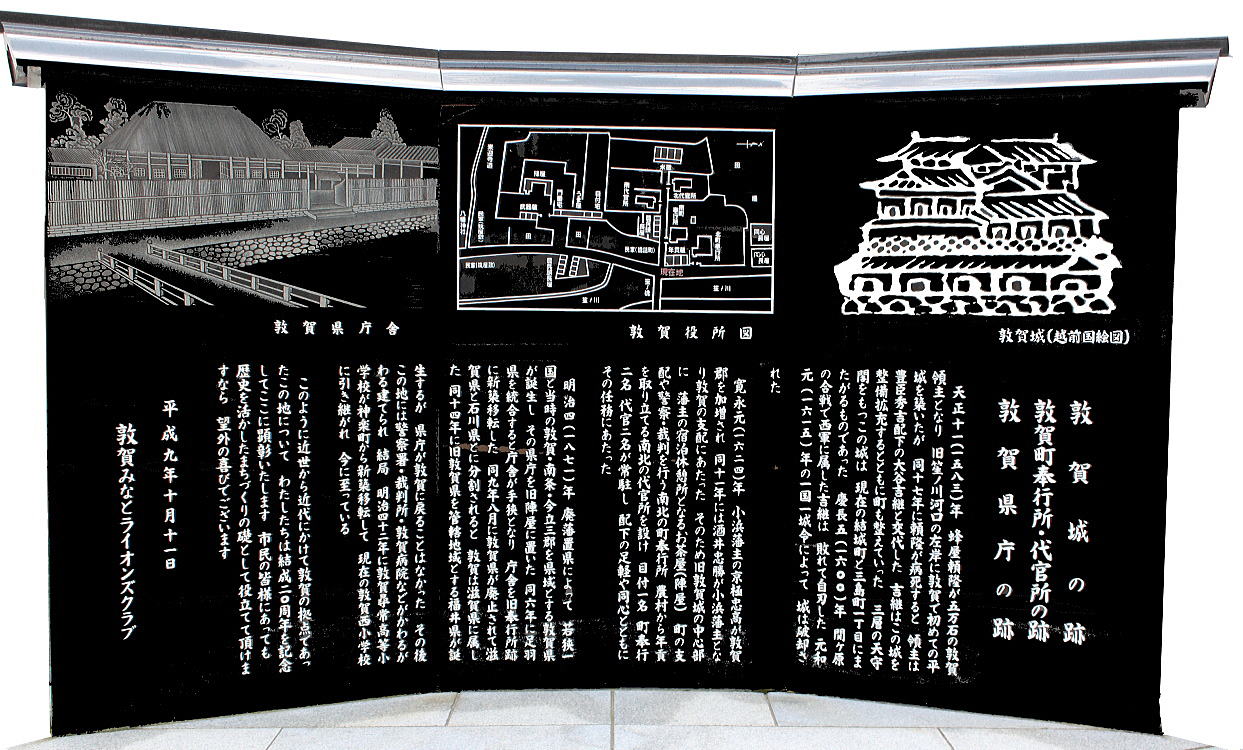 敦賀城の跡
敦賀町奉行所・代官所の跡
敦賀県庁の跡
天正十一(一五八三)年 蜂屋頼隆が五万石の敦賀
領主となり 旧笙ノ川河口の左岸に敦賀で初めての平
城を築いたが 同十七年に頼隆が病死すると 領主は
豊臣秀吉配下の大谷吉継と交代した 吉継はこの城を
整備拡充するとともに町も整えていった 三層の天守
閣をもつこの城は 現在の結城町と三島町一丁目にま
たがるものであった 慶長五(一六〇〇)年 関ヶ原
の合戦で西軍に属した吉継は 敗れて自刃した 元和
元(一六一五)年の一国一城令によって 城は破却さ
れた
寛永元(一六二四)年 小浜藩主の京極忠高が敦賀
郡を加増され 同十一年には酒井忠勝が小浜藩主とな
り敦賀の支配にあたった そのため旧敦賀城の中心部
に 藩主の宿泊休憩所となるお茶屋(陣屋) 町の支
配や警察・裁判を行う南北の町奉行所 農村から年貢
を取り立てる南北の代官所を設け 目付一名 町奉行
二名 代官二名が常駐し 配下の足軽や同心とともに
その任務にあたった
明治四(一八七一)年 廃藩置県によって 若狭一
国と当時の敦賀・南条・今立三郡を県域とする敦賀県
が誕生し その県庁を旧陣屋に置いた 同六年に足羽
県を統合すると庁舎が手狭となり 庁舎を旧奉行所跡
に新築移転した 同九年八月に敦賀県が廃止されて滋
賀県と石川県とに分割されると 敦賀は滋賀県に属し
た 同十四年に旧敦賀県を管轄地域とする福井県が誕
生するが 県庁が敦賀に戻ることはなかった その後
この地には警察署・裁判所・敦賀病院などがかわるが
わる建てられ 結局 明治四十二年に敦賀尋常高等小
学校が神楽町から新築移転して 現在の敦賀西小学校
に引き継がれ 今に至っている
このように近世から近代にかけて敦賀の拠点であっ
たこの地について わたしたちは結成二〇周年を記念
してここに顕彰いたします 市民の皆様にあっても
歴史を活かしたまちづくりの礎として役立てて頂けま
すなら 望外の喜びでございます
平成九年十月十一日
敦賀みなとライオンズクラブ
敦賀城(越前国絵図)
敦賀役所図
敦賀県庁舎
現在地
笙ノ川
笙ノ川
笙ノ橋
北代官所
南代官所
北町奉行所
年貢蔵
陣屋
武器蔵
水堀
田
田
田
畑
同心長屋
同心長屋